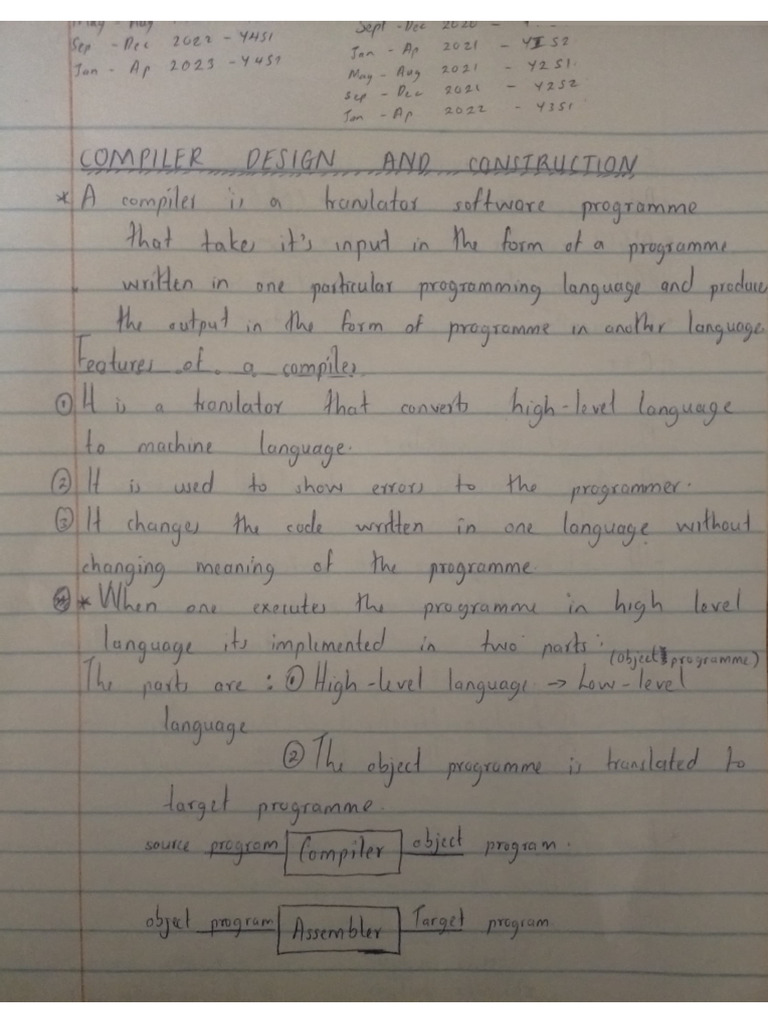 Sept - Dec 2020 -
Sep - Dec 2022 - Y4S1
Jan - Ap 2021 - Y1S2
Jan - Ap 2023 - Y4S2
May - Aug 2021 - Y2S1.
Sep - Dec 2021 - Y2S2
Jan - Ap 2022 - Y3S1
COMPILER DESIGN AND CONSTRUCTION
* A compiler is a translator software programme
that takes it's input in the form of a programme
written in one particular programming language and produce
the output in the form of programme in another language.
Features of a compiler
① It is a translator that converts high-level language
to machine language.
② It is used to show errors to the programmer.
③ It changes the code written in one language without
changing meaning of the programme.
* When one executes the programme in high level
language its implemented in two parts:
(object programme)
The parts are : ① High-level language → Low-level
language
② The object programme is translated to
target programme.
source program Compiler object program.
object program Assembler Target program.